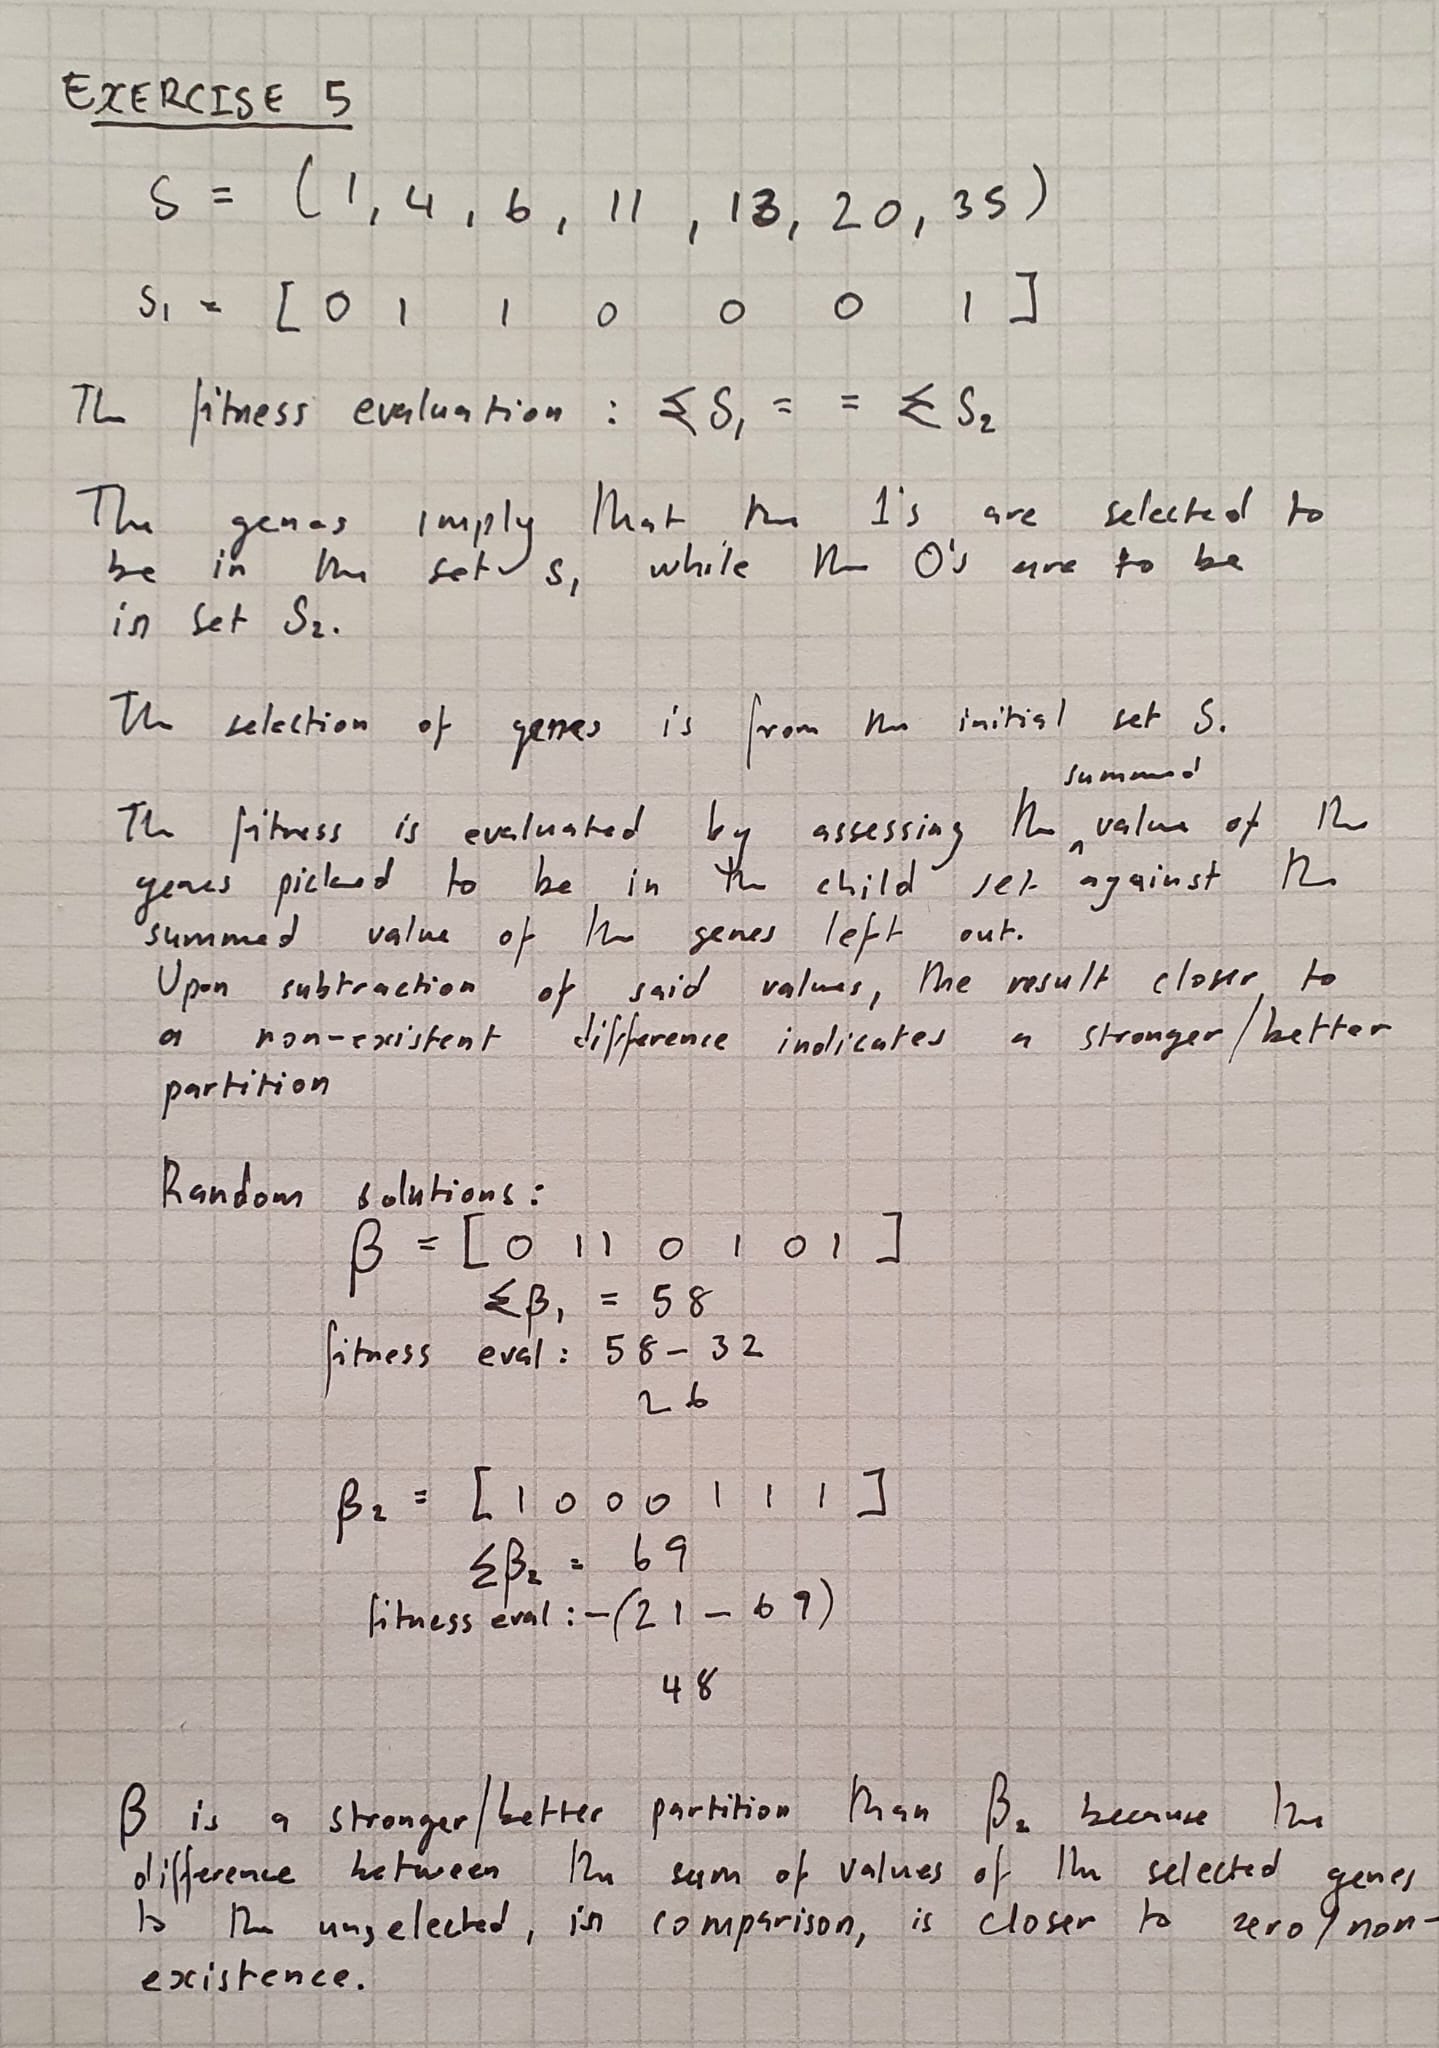 EXERCISE 5
S = (1, 4, 6, 11, 13, 20, 35)
S₁ = [ 0 1 1 0 0 0 1 ]
The fitness evaluation : Σ S₁ = = Σ S₂
The genes imply that the 1's are selected to
be in the set S₁ while the 0's are to be
in set S₂.
The selection of genes is from the initial set S.
summed
The fitness is evaluated by assessing the ^ value of the
genes picked to be in the child set against the
summed value of the genes left out.
Upon subtraction of said values, the result closer to
a non-existent difference indicates a stronger/better
partition
Random solutions:
β = [ 0 1 1 0 1 0 1 ]
Σβ₁ = 58
fitness eval: 58 - 32
26
β₂ = [ 1 0 0 0 1 1 1 ]
Σβ₂ = 69
fitness eval: -(21 - 69)
48
β is a stronger/better partition than β₂ because the
difference between the sum of values of the selected genes
to the unselected, in comparison, is closer to zero/non-
existence.